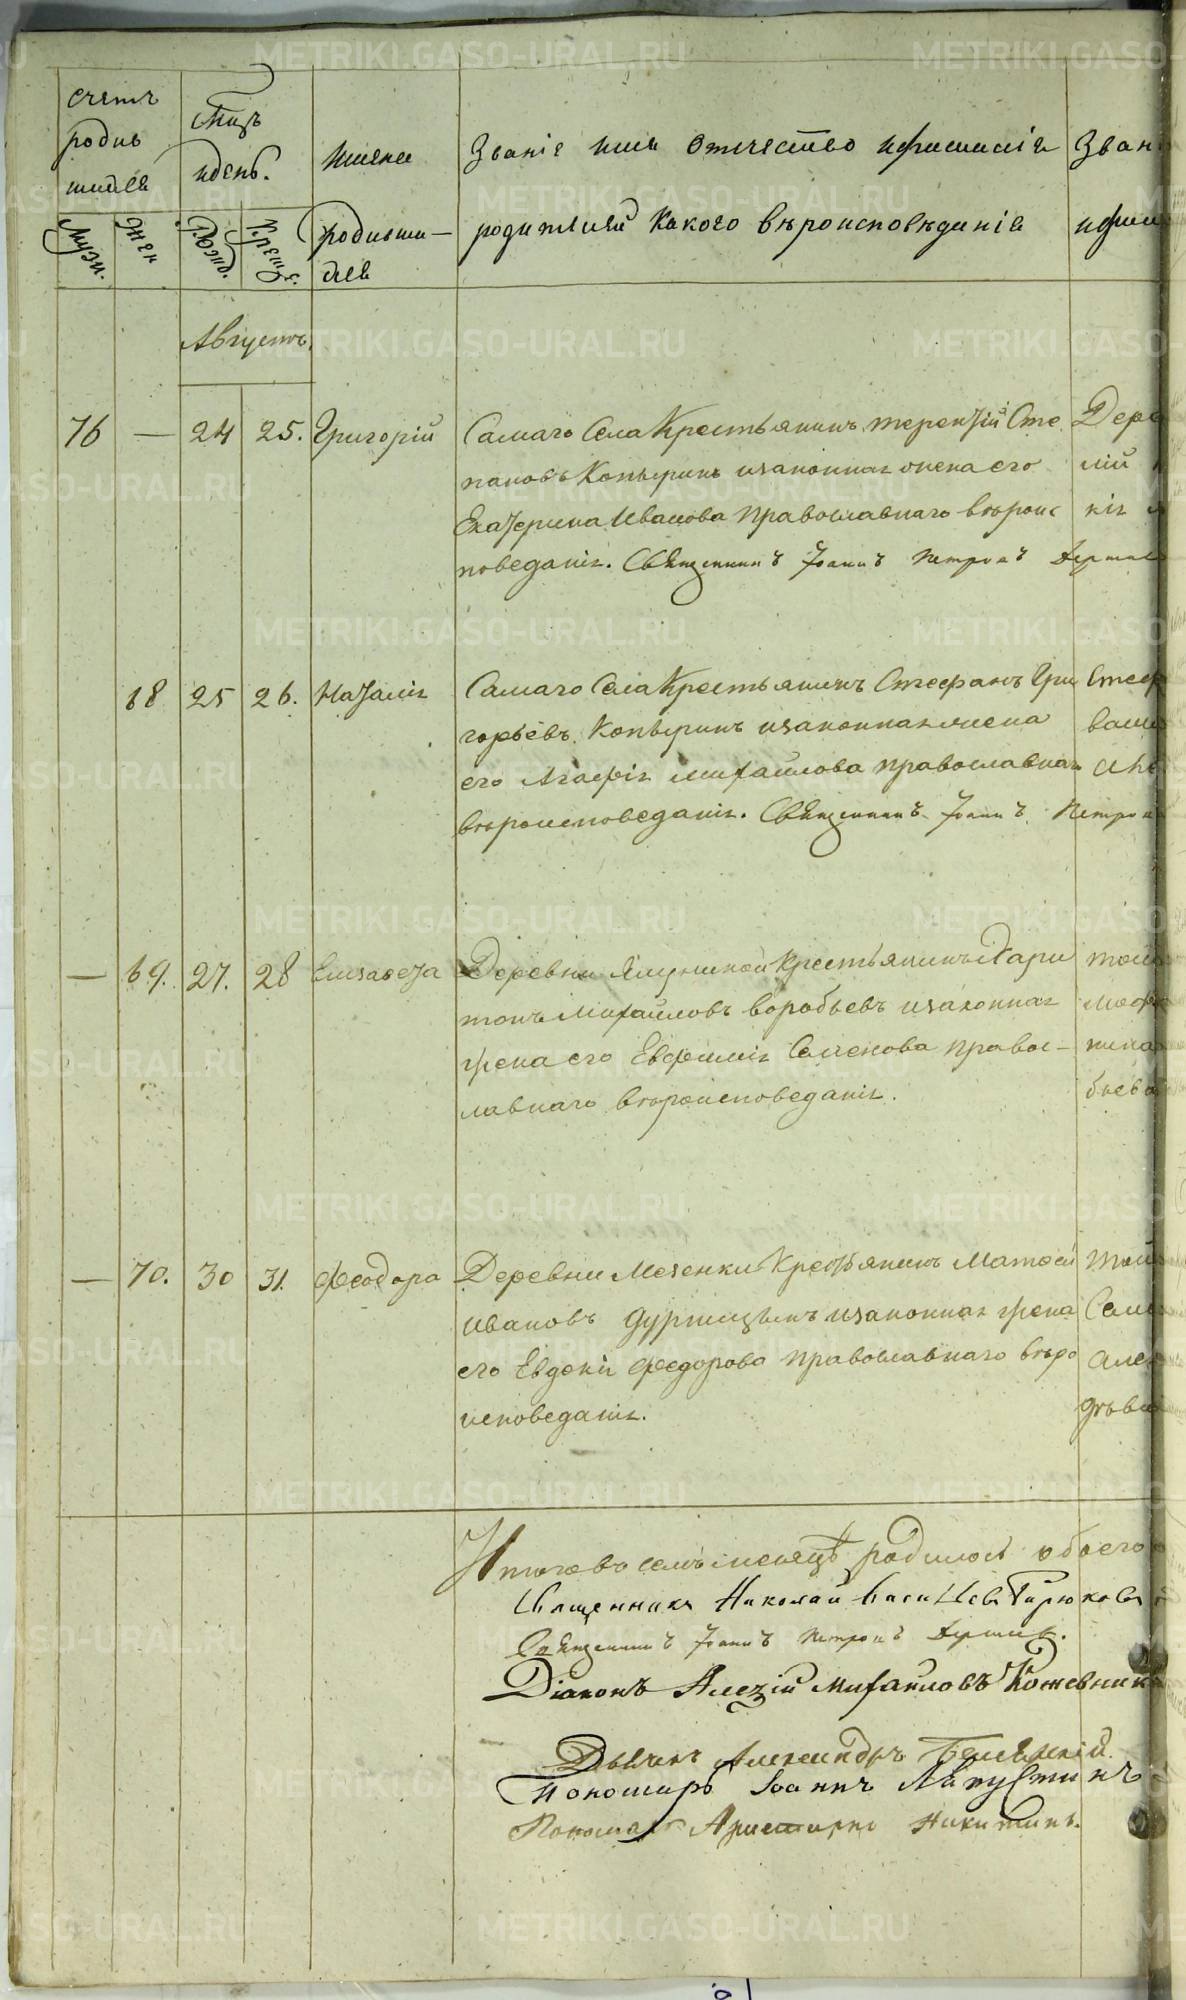 Счетъ родив шихся
Муж. Жен
Мцъ идень.
Рожд. Крещ.
Имена родивши—хся
Званіе имя отчество ифамилія
родителей какого вѣроисповѣданія
Зван
ифами
Августъ.
76 — 24 25. Григорій Самаго Села Крестьянинъ терентій Сте
пановъ Копыринъ изаконная жена его
Екатерина Иванова Православнаго вѣроис
поведанія. Священникъ Іоаннъ Петровъ
Дере
лій
кія
68 25 26. Наталія Самаго Села Крестьянинъ Стефанъ Гри
горьевъ Копыринъ изаконная жена
его Агафія михайлова православнаго
вѣроисповеданія. Священникъ Іоаннъ Петров
Стеф
— 69. 27. 28 Елизавета Деревни Крестьянинъ Хари
тонъ Михайловъ воробьевъ изаконная
жена его Евфимія Семенова правос—
лавнаго вѣроисповеданія.
той
бьева
— 70. 30 31. Феодора Деревни Мезенки Крестьянинъ Матфей
ивановъ изаконная жена
его Евдокія федорова православнаго вѣро
исповеданія.
той
Семе
Алек
Итого въ семъ месяцѣ родилось обоего
Священникъ Николай Васильевъ Бирюковъ
Священникъ Іоаннъ Петровъ
Діаконъ Алезій Михайловъ Кожевник
Дьячекъ Александръ
Пономарь Іоаннъ
Пономарь Аристархъ Никитинъ.
METRIKI.GASO-URAL.RU